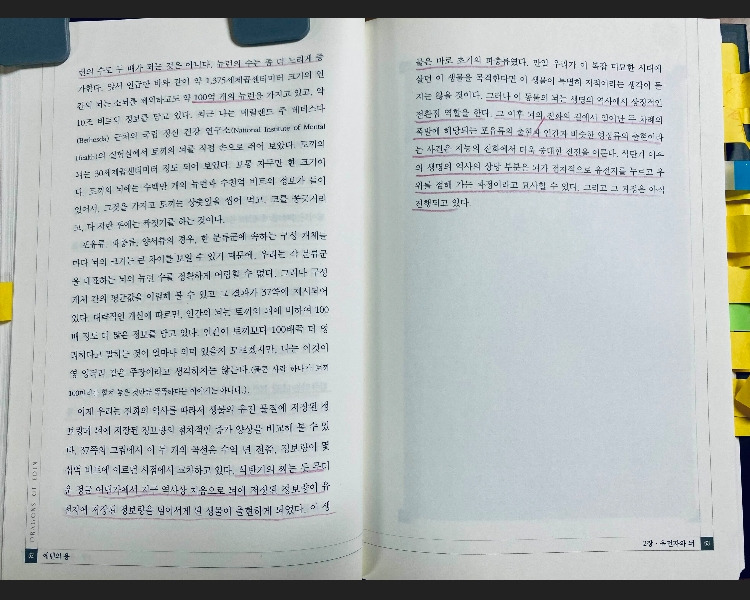 런의 수도 두 배가 되는 것은 아니다. 뉴런의 수는 좀 더 느리게 증
가한다. 앞서 언급한 바와 같이 약 1,375세제곱센티미터 크기의 인
간의 뇌는 소뇌를 제외하고도 약 100억 개의 뉴런을 가지고 있고, 약
10조 비트의 정보를 담고 있다. 최근 나는 메릴랜드 주 베데스다
(Bethesda) 근처의 국립 정신 건강 연구소(National Institute of Mental
Health)의 실험실에서 토끼의 뇌를 직접 손으로 들어 보았다. 토끼의
뇌는 30세제곱센티미터 정도 되어 보였다. 보통 자두만 한 크기이
다. 토끼의 뇌에는 수백만 개의 뉴런과 수천억 비트의 정보가 들어
있어서, 그것을 가지고 토끼는 상춧잎을 씹어 먹고, 코를 쫑긋거리
고, 다 자란 뒤에는 짝짓기를 하는 것이다.
포유류, 파충류, 양서류의 경우, 한 분류군에 속하는 구성 개체들
마다 뇌의 크기는 큰 차이를 보일 수 있기 때문에, 우리는 각 분류군
을 대표하는 뇌의 뉴런 수를 정확하게 어림할 수 없다. 그러나 구성
개체 간의 평균값을 어림해 볼 수 있고 그 결과가 37쪽에 제시되어
있다. 대략적인 계산에 따르면, 인간의 뇌는 토끼의 뇌에 비하여 100
배 정도 더 많은 정보를 담고 있다. 인간이 토끼보다 100배쯤 더 영
리하다고 말하는 것이 얼마나 의미 있을지 모르겠지만, 나는 이것이
영 엉터리 같은 주장이라고 생각하지는 않는다.
이제 우리는 진화의 역사를 따라서 생물의 유전 물질에 저장된 정
보량과 뇌에 저장된 정보량의 점차적인 증가 양상을 비교해 볼 수 있
다. 37쪽의 그림에서 이 두 개의 곡선은 수억 년 전쯤, 정보량이 몇
십억 비트에 이르던 시점에서 교차하고 있다. 석탄기의 찌는 듯 무더
운 정글 어딘가에서 지구 역사상 처음으로 뇌에 저장된 정보량이 유
전자에 저장된 정보량을 넘어서게 된 생물이 출현하게 되었다. 이 생
DRAGONS OF EDEN
에덴의 용
물은 바로 초기의 파충류였다. 만일 우리가 이 복잡 미묘한 시대에
살던 이 생물을 목격한다면 이 생물이 특별히 지적이라는 생각이 들
지는 않을 것이다. 그러나 이 동물의 뇌는 생명의 역사에서 상징적인
전환점 역할을 한다. 그 이후 뇌의 진화의 길에서 일어난 두 차례의
폭발에 해당되는 포유류의 출현과 인간과 비슷한 영장류의 출현이라
는 사건은 지능의 진화에서 더욱 중대한 진전을 이룬다. 석탄기 이후
의 생명의 역사의 상당 부분은 뇌가 점차적으로 유전자를 누르고 우
위를 점해 가는 과정이라고 묘사할 수 있다. 그리고 그 과정은 아직
진행되고 있다.
2장 · 유전자와 뇌